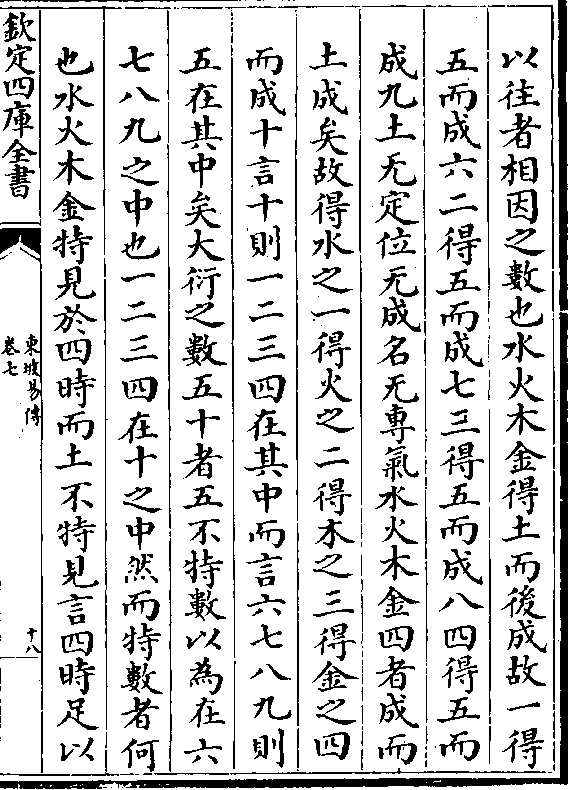 以往者相因之數也水火木金得土而後成故一得
五而成六二得五而成七三得五而成八四得五而
成九土无定位无成名无專氣水火木金四者成而
土成矣故得水之一得火之二得木之三得金之四
而成十言十則一二三四在其中而言六七八九則
五在其中矣大衍之數五十者五不特數以為在六
七八九之中也一二三四在十之中然而特數者何
也水火木金特見於四時而土不特見言四時足以
欽定四庫全書
東坡易傳
卷七
十八